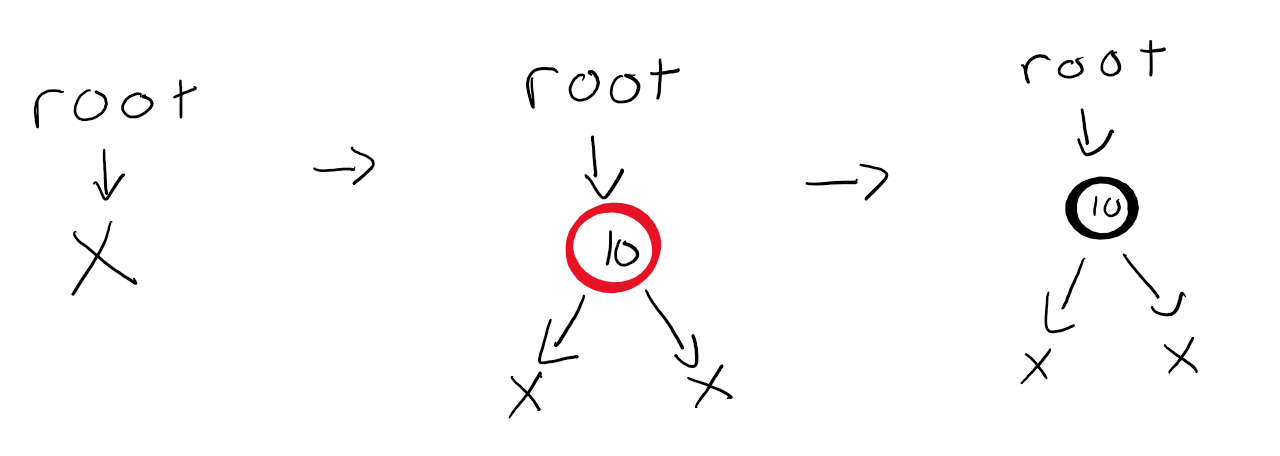 root
X
root
10
X X
root
10
X X